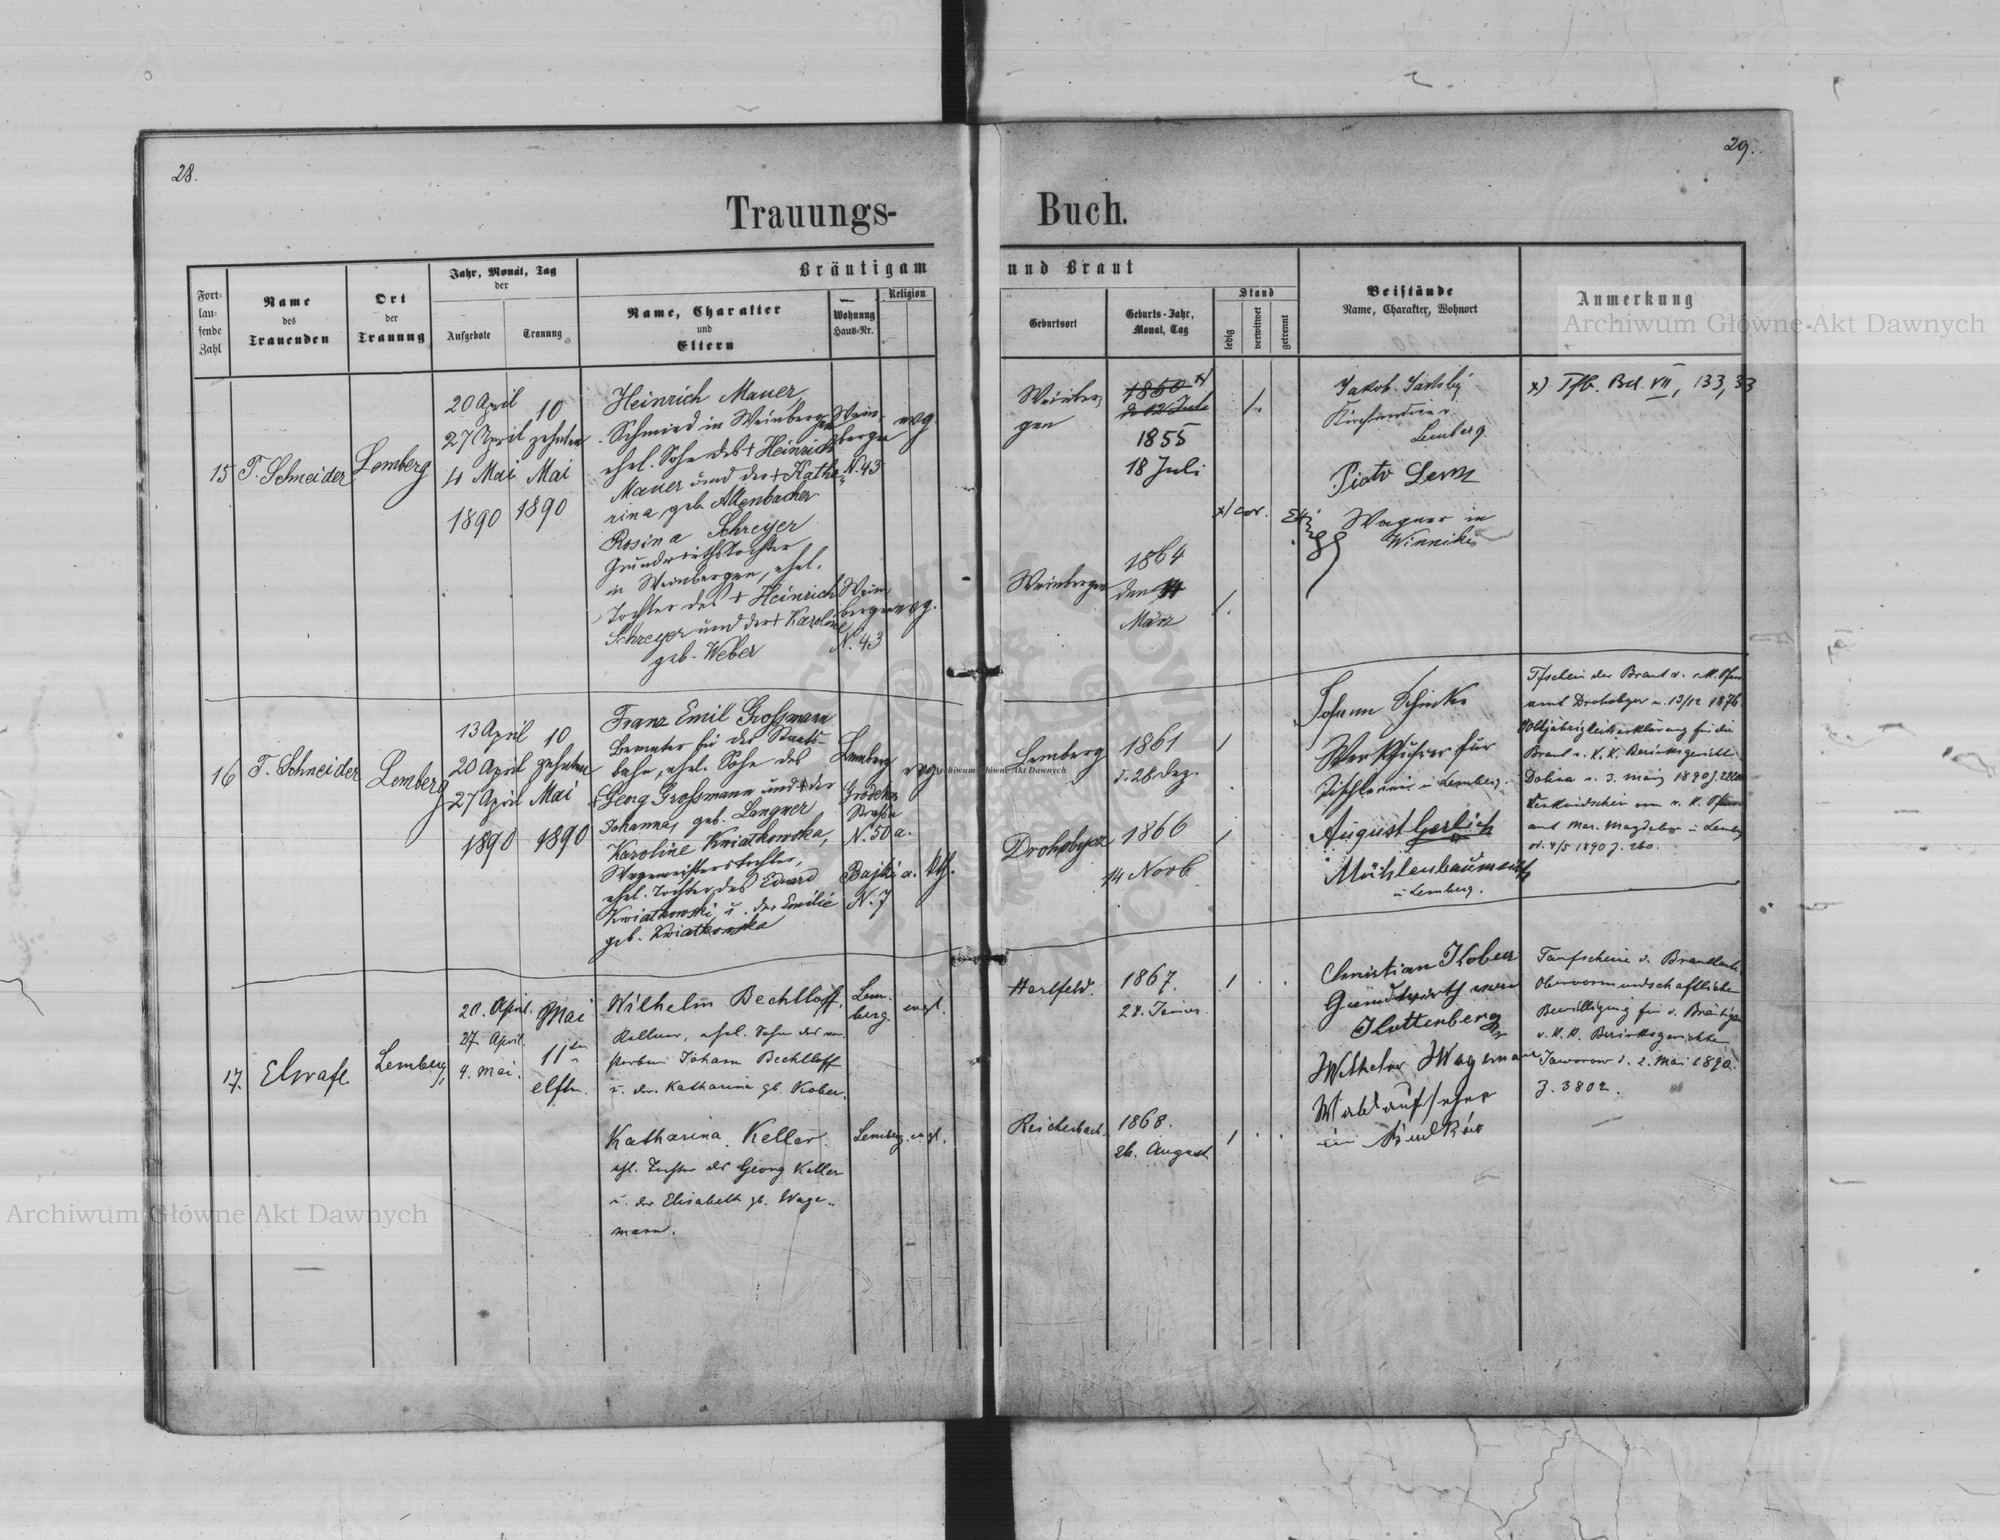 28.
29.
Trauungs-
Buch.
Fort-
lau-
fende
Zahl
Name
des
Trauenden
Ort
der
Trauung
Jahr, Monat, Tag
der
Aufgebote
Trauung
Bräutigam
und Braut
Name, Charakter
und
Eltern
Wohnung
Haus-Nr.
Religion
Geburtsort
Geburts-Jahr,
Monat, Tag
Stand
ledig
verwitwet
getrennt
Beistände
Name, Charakter, Wohnort
Anmerkung
Archiwum Główne Akt Dawnych
15
T. Schneider
Lemberg
20 April
27 April
4 Mai
1890
10
zehnten
Mai
1890
Heinrich Mauer,
Schmied in Weinbergen
ehel. Sohn des + Heinrich
Mauer und der + Katha-
rina, geb. Altenbacher
Rosina Schreyer
Grundwirthstochter
in Weinbergen, ehel.
Tochter des + Heinrich
Schreyer und der + Karoline
geb. Weber
Wein-
bergen
N. 43
evg.
Wein-
bergen
N. 43
evg.
Weinber-
gen
1850 x)
d. 12 Juli
1855
18 Juli
x) cor.
Weinbergen
1864
den 14
März
Jakob
Kirchendiener
Lemberg
Piotr
Wagner in
Winniki
x) Tfb. Bd. VII, 133, 33
16
T. Schneider
Lemberg
13 April
20 April
27 April
1890
10
zehnten
Mai
1890
Franz Emil Grossmann
Beamter bei der Staats-
bahn, ehel. Sohn des
Georg Grossmann und der
Johanna, geb. Langner
Karoline Kwiatkowska,
Wegemeisterstochter,
ehel. Tochter des Eduard
Kwiatkowski u. der Emilie
geb. Kwiatkowska
Lemberg
Grodeker
Straße
N. 50 a.
evg.
Bajki
N. 7
kth.
Lemberg
1861
d. 28 Dez.
Drohobycz
1866
14 Novb.
Johann Schinke
Werkführer für
Tischlerei in Lemberg.
August Gerlich
Mühlenbaumeister
in Lemberg.
Tfschein der Braut v. r. k. Pfarr-
amt Drohobycz v. 13/12 1876
Volljährigkeitserklärung für die
Braut v. K. K. Bezirksgericht
Dolina v. 3. März 1890 J.
Verkündschein vom r. k. Pfarr-
amt Mar. Magdalena in Lemberg
v. 4/5 1890 J. 260.
Archiwum Główne Akt Dawnych
17.
Elsrafe
Lemberg
20. April.
27 April.
4. Mai.
Mai
11ten
elften.
Wilhelm Bechtloff
Kellner, ehel. Sohn des ver-
storbenen Johann Bechtloff
u. der Katharina gb. Kober.
Katharina Keller
ehl. Tochter des Georg Keller
u. der Elisabeth gb. Wage-
mann.
Lem-
berg.
evgl.
Lemberg.
evgl.
Hartfeld.
1867.
28. Jänner
Reichenbach.
1868.
26. August
Christian Kober
Grundwirth von
Kottenberg
Wilhelm Wagemann
Waldaufseher
in Rudki
Taufscheine d. Brautleute
Obervormundschaftliche
Bewilligung für d. Bräutigam
v. K. K. Bezirksgerichte
Jaworow d. 2. Mai 1890.
J. 3802.
Archiwum Główne Akt Dawnych